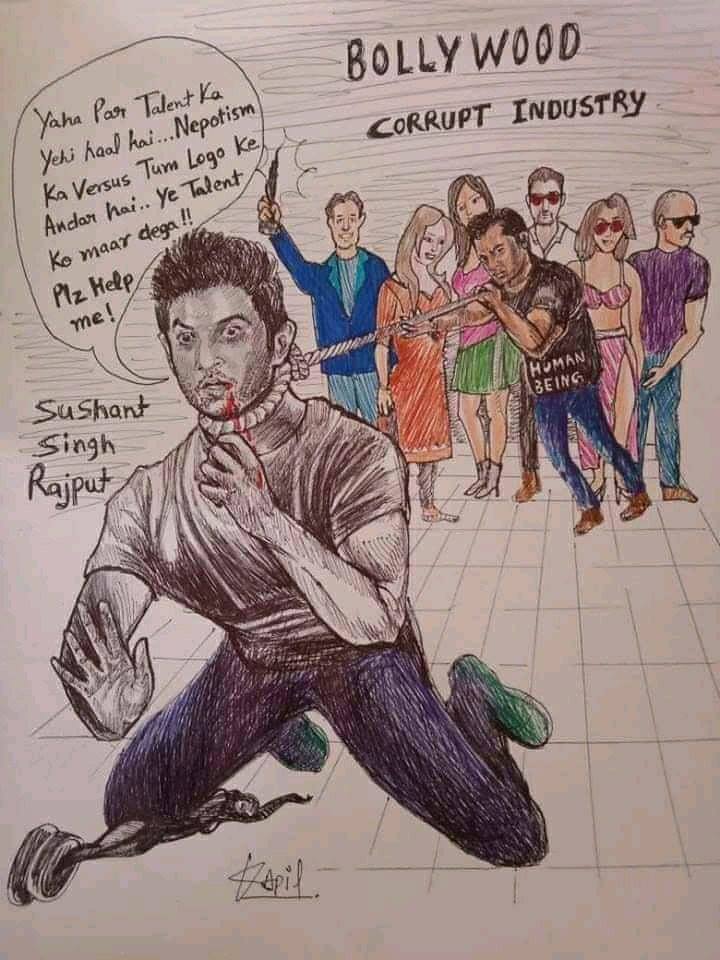 BOLLYWOOD
CORRUPT INDUSTRY
Yaha Par Talent Ka
Yehi haal hai...Nepotism
Ka Versus Tum Logo Ke
Andar hai.. Ye Talent
Ko maar dega!!
Plz Help
me!
Sushant
Singh
Rajput
HUMAN
BEING
Kapil.